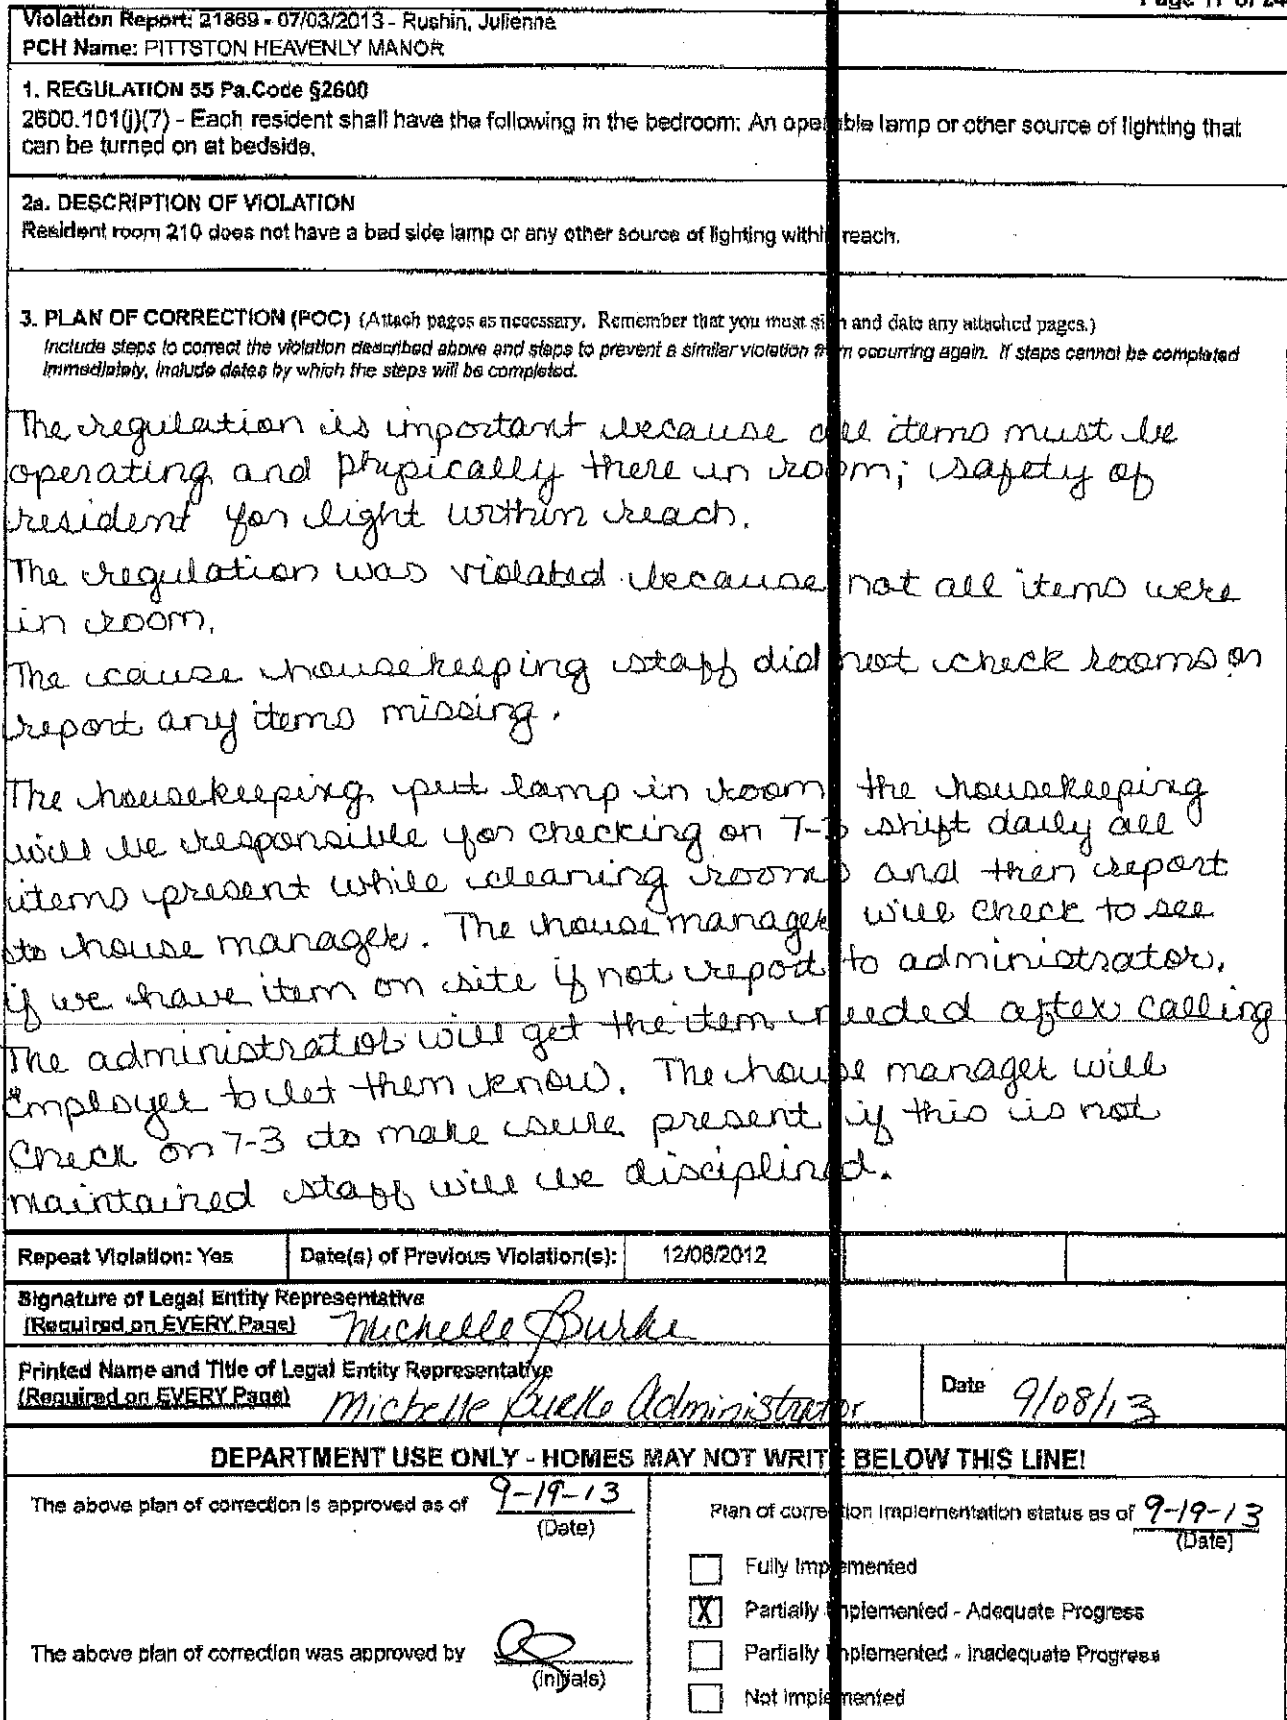 Page 11 of 24
Violation Report: 21869 - 07/03/2013 - Rushin, Julienne
PCH Name: PITTSTON HEAVENLY MANOR
1. REGULATION 55 Pa.Code §2600
2600.101(j)(7) - Each resident shall have the following in the bedroom: An operable lamp or other source of lighting that
can be turned on at bedside.
2a. DESCRIPTION OF VIOLATION
Resident room 210 does not have a bed side lamp or any other source of lighting within reach.
3. PLAN OF CORRECTION (POC) (Attach pages as necessary. Remember that you must sign and date any attached pages.)
Include steps to correct the violation described above and steps to prevent a similar violation from occurring again. If steps cannot be completed
immediately, include dates by which the steps will be completed.
The regulation is important because all items must be
operating and physically there in room; safety of
resident for light within reach.
The regulation was violated because not all items were
in room.
The cause housekeeping staff did not check rooms or
report any items missing.
The housekeeping put lamp in room the housekeeping
will be responsible for checking on 7-3 shift daily all
items present while cleaning rooms and then report
to house manager. The house manager will check to see
if we have item on site if not report to administrator.
The administrator will get the item needed after calling
employer to let them know. The house manager will
check on 7-3 to make sure present if this is not
maintained staff will be disciplined.
Repeat Violation: Yes Date(s) of Previous Violation(s): 12/06/2012
Signature of Legal Entity Representative
(Required on EVERY Page) Michelle Burke
Printed Name and Title of Legal Entity Representative
(Required on EVERY Page) Michelle Burke Administrator Date 9/08/13
DEPARTMENT USE ONLY - HOMES MAY NOT WRITE BELOW THIS LINE!
The above plan of correction is approved as of 9-19-13
(Date)
Plan of correction implementation status as of 9-19-13
(Date)
Fully Implemented
X Partially Implemented - Adequate Progress
The above plan of correction was approved by
(Initials)
Partially Implemented - Inadequate Progress
Not Implemented